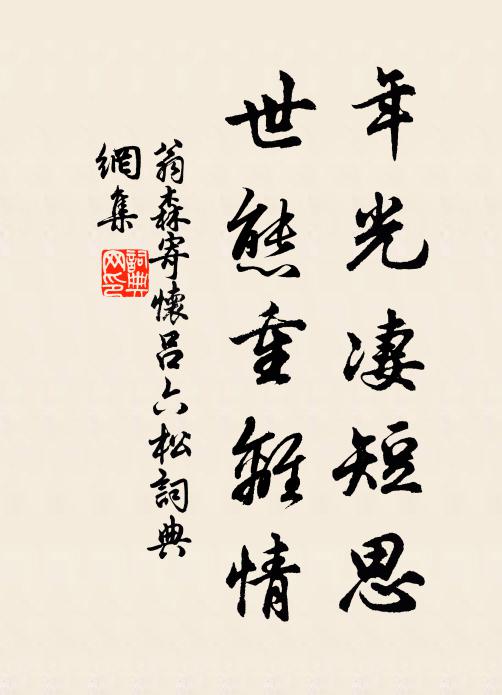 年光凄短思
世態重離情
翁森寄懷呂六松詞典
網集
詞典
网印